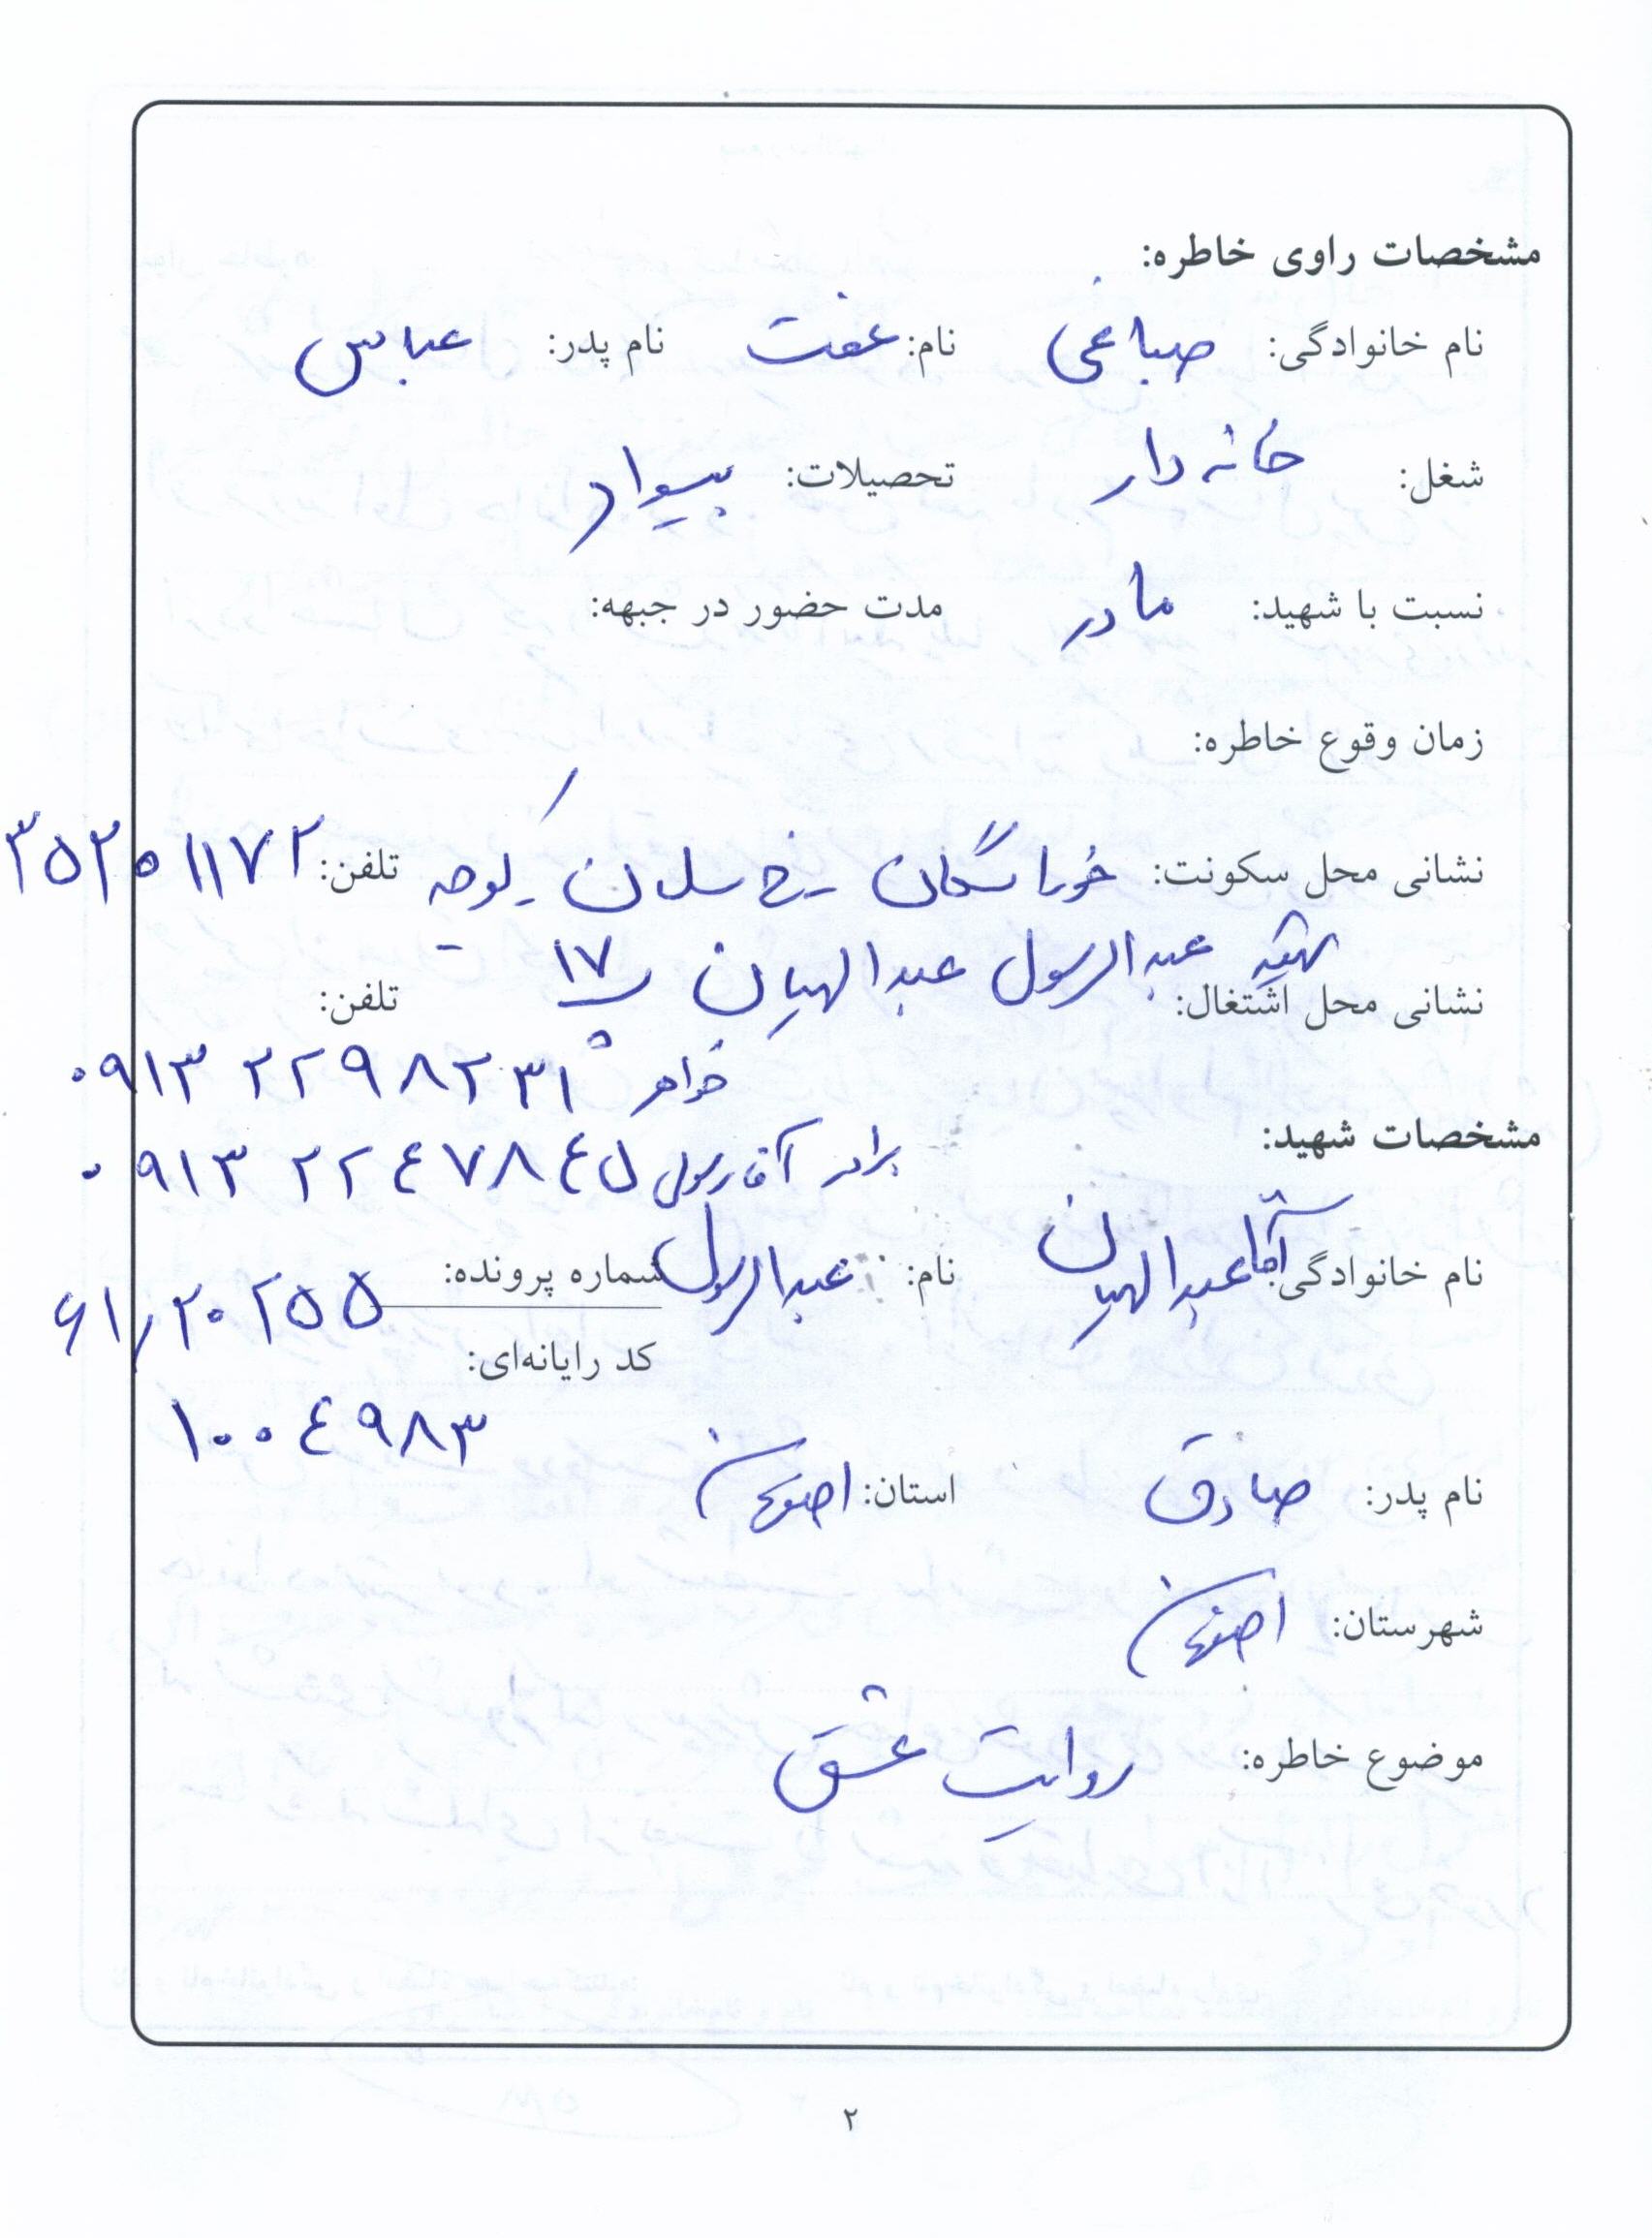 مشخصات راوی خاطره:
نام خانوادگی: صباغی نام: عفت نام پدر: عباس
شغل: خانه دار تحصیلات: بیسواد
نسبت با شهید: مادر مدت حضور در جبهه:
زمان وقوع خاطره:
نشانی محل سکونت: خوراسگان کوچه تلفن: ۳۵۲۵۱۱۷۲
شهید عبدالرسول عبدالهیان ۱۷
نشانی محل اشتغال: تلفن:
خواهر ۰۹۱۳ ۲۲۹۸۲۳۱
برادر آقا رسول ۰۹۱۳ ۲۲۴۷۸۴۵
مشخصات شهید:
نام خانوادگی: آقا عبدالهیان نام: عبدالرسول شماره پرونده: ۶۱/۲۰۲۵۵
کد رایانه‌ای:
۱۰۰۴۹۸۳
نام پدر: صادق استان: اصفهان
شهرستان: اصفهان
موضوع خاطره: روایت عشق
۲